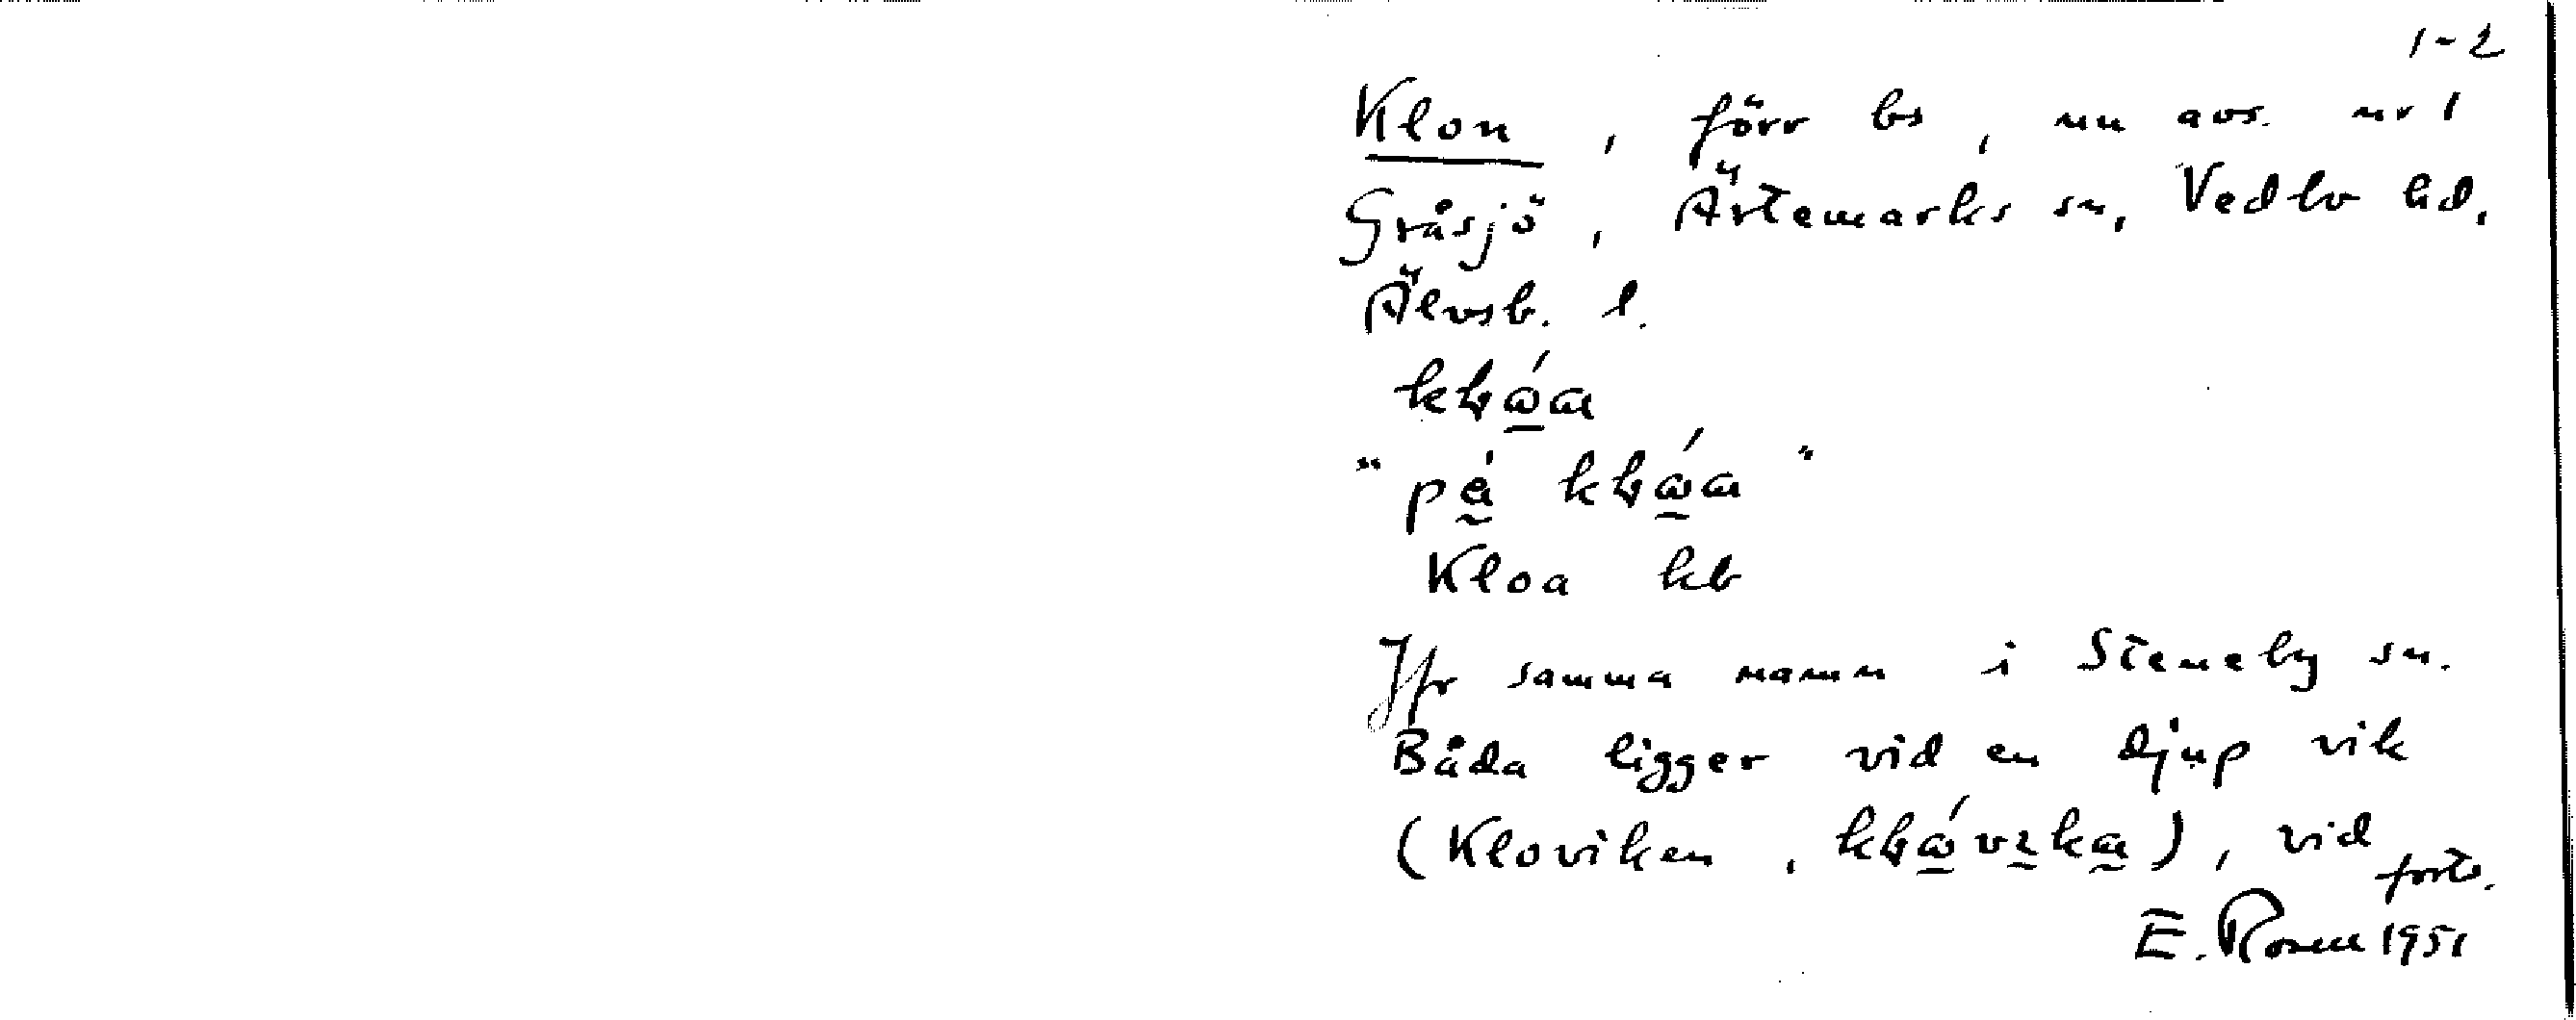 1-2
Klon, förr bs, nu avs. nr 1
Gråsjö, Ärtemarks sn, Vedbo hd,
Älvsb. l.
"på
Kloa kb
Jfr samma namn i Steneby sn.
Båda ligger vid en djup vik
(Kloviken, ), vid
forts.
E. Rosén 1951